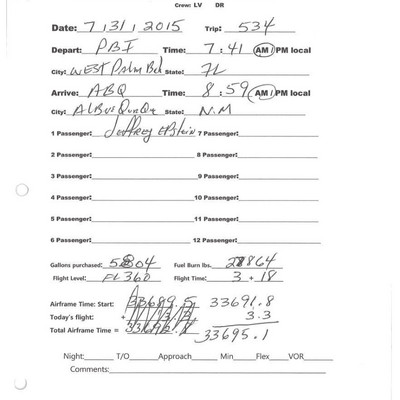 Crew: LV DR
Date: 7/31/2015 Trip: 534
Depart: PBI Time: 7:41 AM/PM local
City: WEST Palm Bch State: FL
Arrive: ABQ Time: 8:59 AM/PM local
City: State: N.M
1 Passenger: Jeffrey EPstein 7 Passenger:
2 Passenger: 8 Passenger:
3 Passenger: 9 Passenger:
4 Passenger: 10 Passenger:
5 Passenger: 11 Passenger:
6 Passenger: 12 Passenger:
Gallons purchased: Fuel Burn lbs.
Flight Level: FL 360 Flight Time: 3 + 18
Airframe Time: Start: 33689.5 33691.8
Today's flight: + 3.3
Total Airframe Time = 33695.1
Night: T/O Approach Min Flex VOR
Comments: